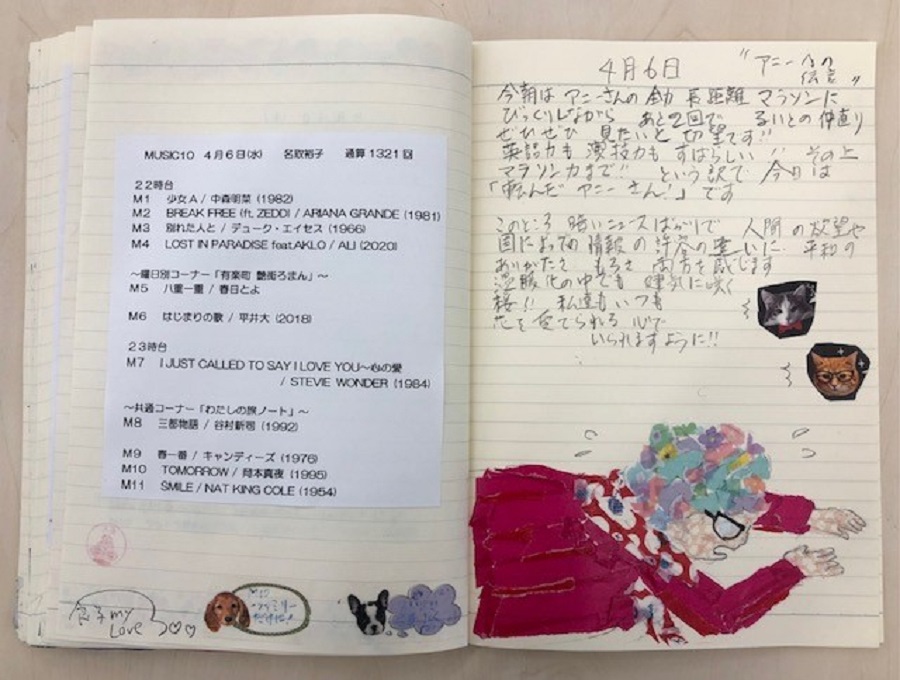 MUSIC10 4月6日(水) 名取裕子 通算1321回
22時台
M1 少女A / 中森明菜 (1982)
M2 BREAK FREE (ft. ZEDD) / ARIANA GRANDE (1981)
M3 別れた人と / デューク・エイセス (1966)
M4 LOST IN PARADISE feat.AKLO / ALI (2020)
～曜日別コーナー「有楽町 艶街ろまん」～
M5 八重一重 / 春日とよ
M6 はじまりの歌 / 平井大 (2018)
23時台
M7 I JUST CALLED TO SAY I LOVE YOU～心の愛
/ STEVIE WONDER (1984)
～共通コーナー「わたしの旅ノート」～
M8 三都物語 / 谷村新司 (1992)
M9 春一番 / キャンディーズ (1976)
M10 TOMORROW / 岡本真夜 (1995)
M11 SMILE / NAT KING COLE (1954)
my
Love
4月6日
"アニーへの
伝言"
今朝は アニーさんの 全力 長距離 マラソンに
びっくりしながら あと2回で るいとの仲直り
ぜひぜひ 見たいと 切望です!!
英語力も 演技力も すばらしい!! その上
マラソン力まで!! という訳で 今日は
「転んだ アニーさん!」です
このところ 暗いニュースばかりで 人間の欲望や
国によっての 情報の 違いに 平和の
ありがたさ もろさ 両方を感じます
温暖化の中でも 健気に咲く
桜!! 私達も いつも
花を愛でられる 心で
いられますように!!